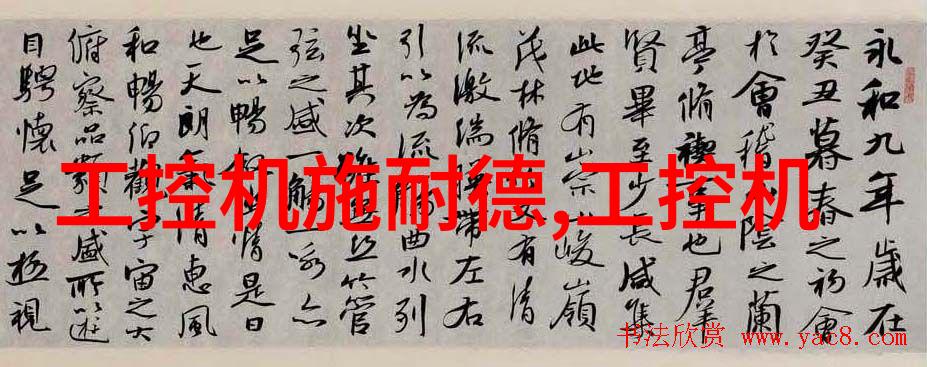 永和九年歲在
癸丑暮春之初會
於會稽山陰之蘭
亭脩禊事也羣
賢畢至少長咸集
此地有崇山峻嶺
茂林脩竹又有清
流激湍暎帶左右
引以為流觴曲水列
坐其次雖無絲竹管
弦之盛一觴一詠亦
足以暢敘幽情是日
也天朗氣清惠風
和暢仰觀宇宙之大
俯察品類之盛所以遊
目騁懷足以極視
工控机施耐德,工控机
书法欣赏 www.yac8.com